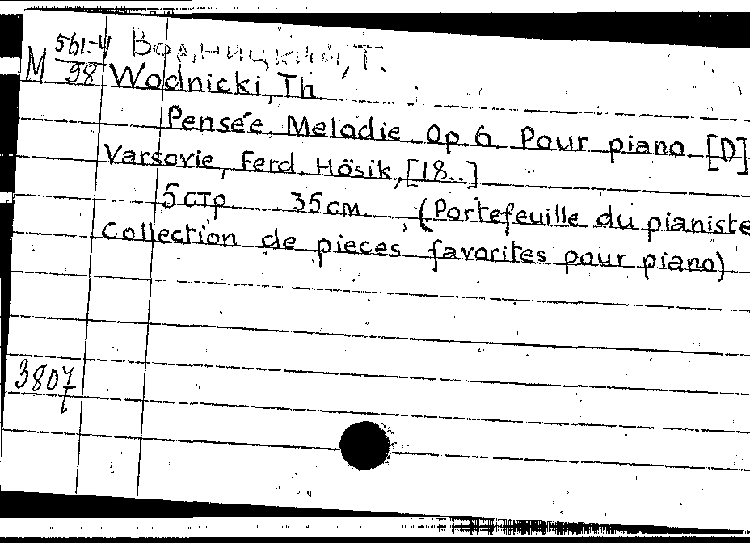 М 561-4/98 Водницкий, Т.
Wodnicki, Th
Pensée. Melodie. Op. 6. Pour piano. [D]
Varsovie, Ferd. Hösik, [18..]
5 стр 35 см. (Portefeuille du pianiste
Collection de pieces favorites pour piano)
3807